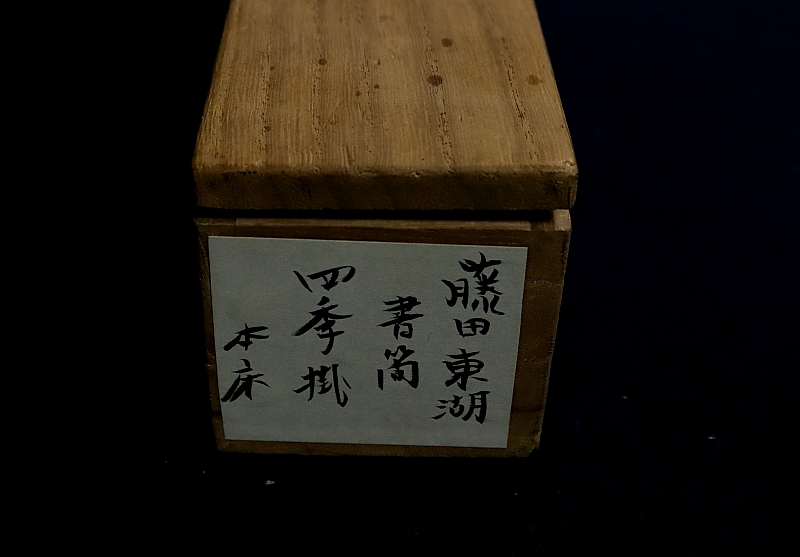 藤田東湖
書簡
四季掛
本床